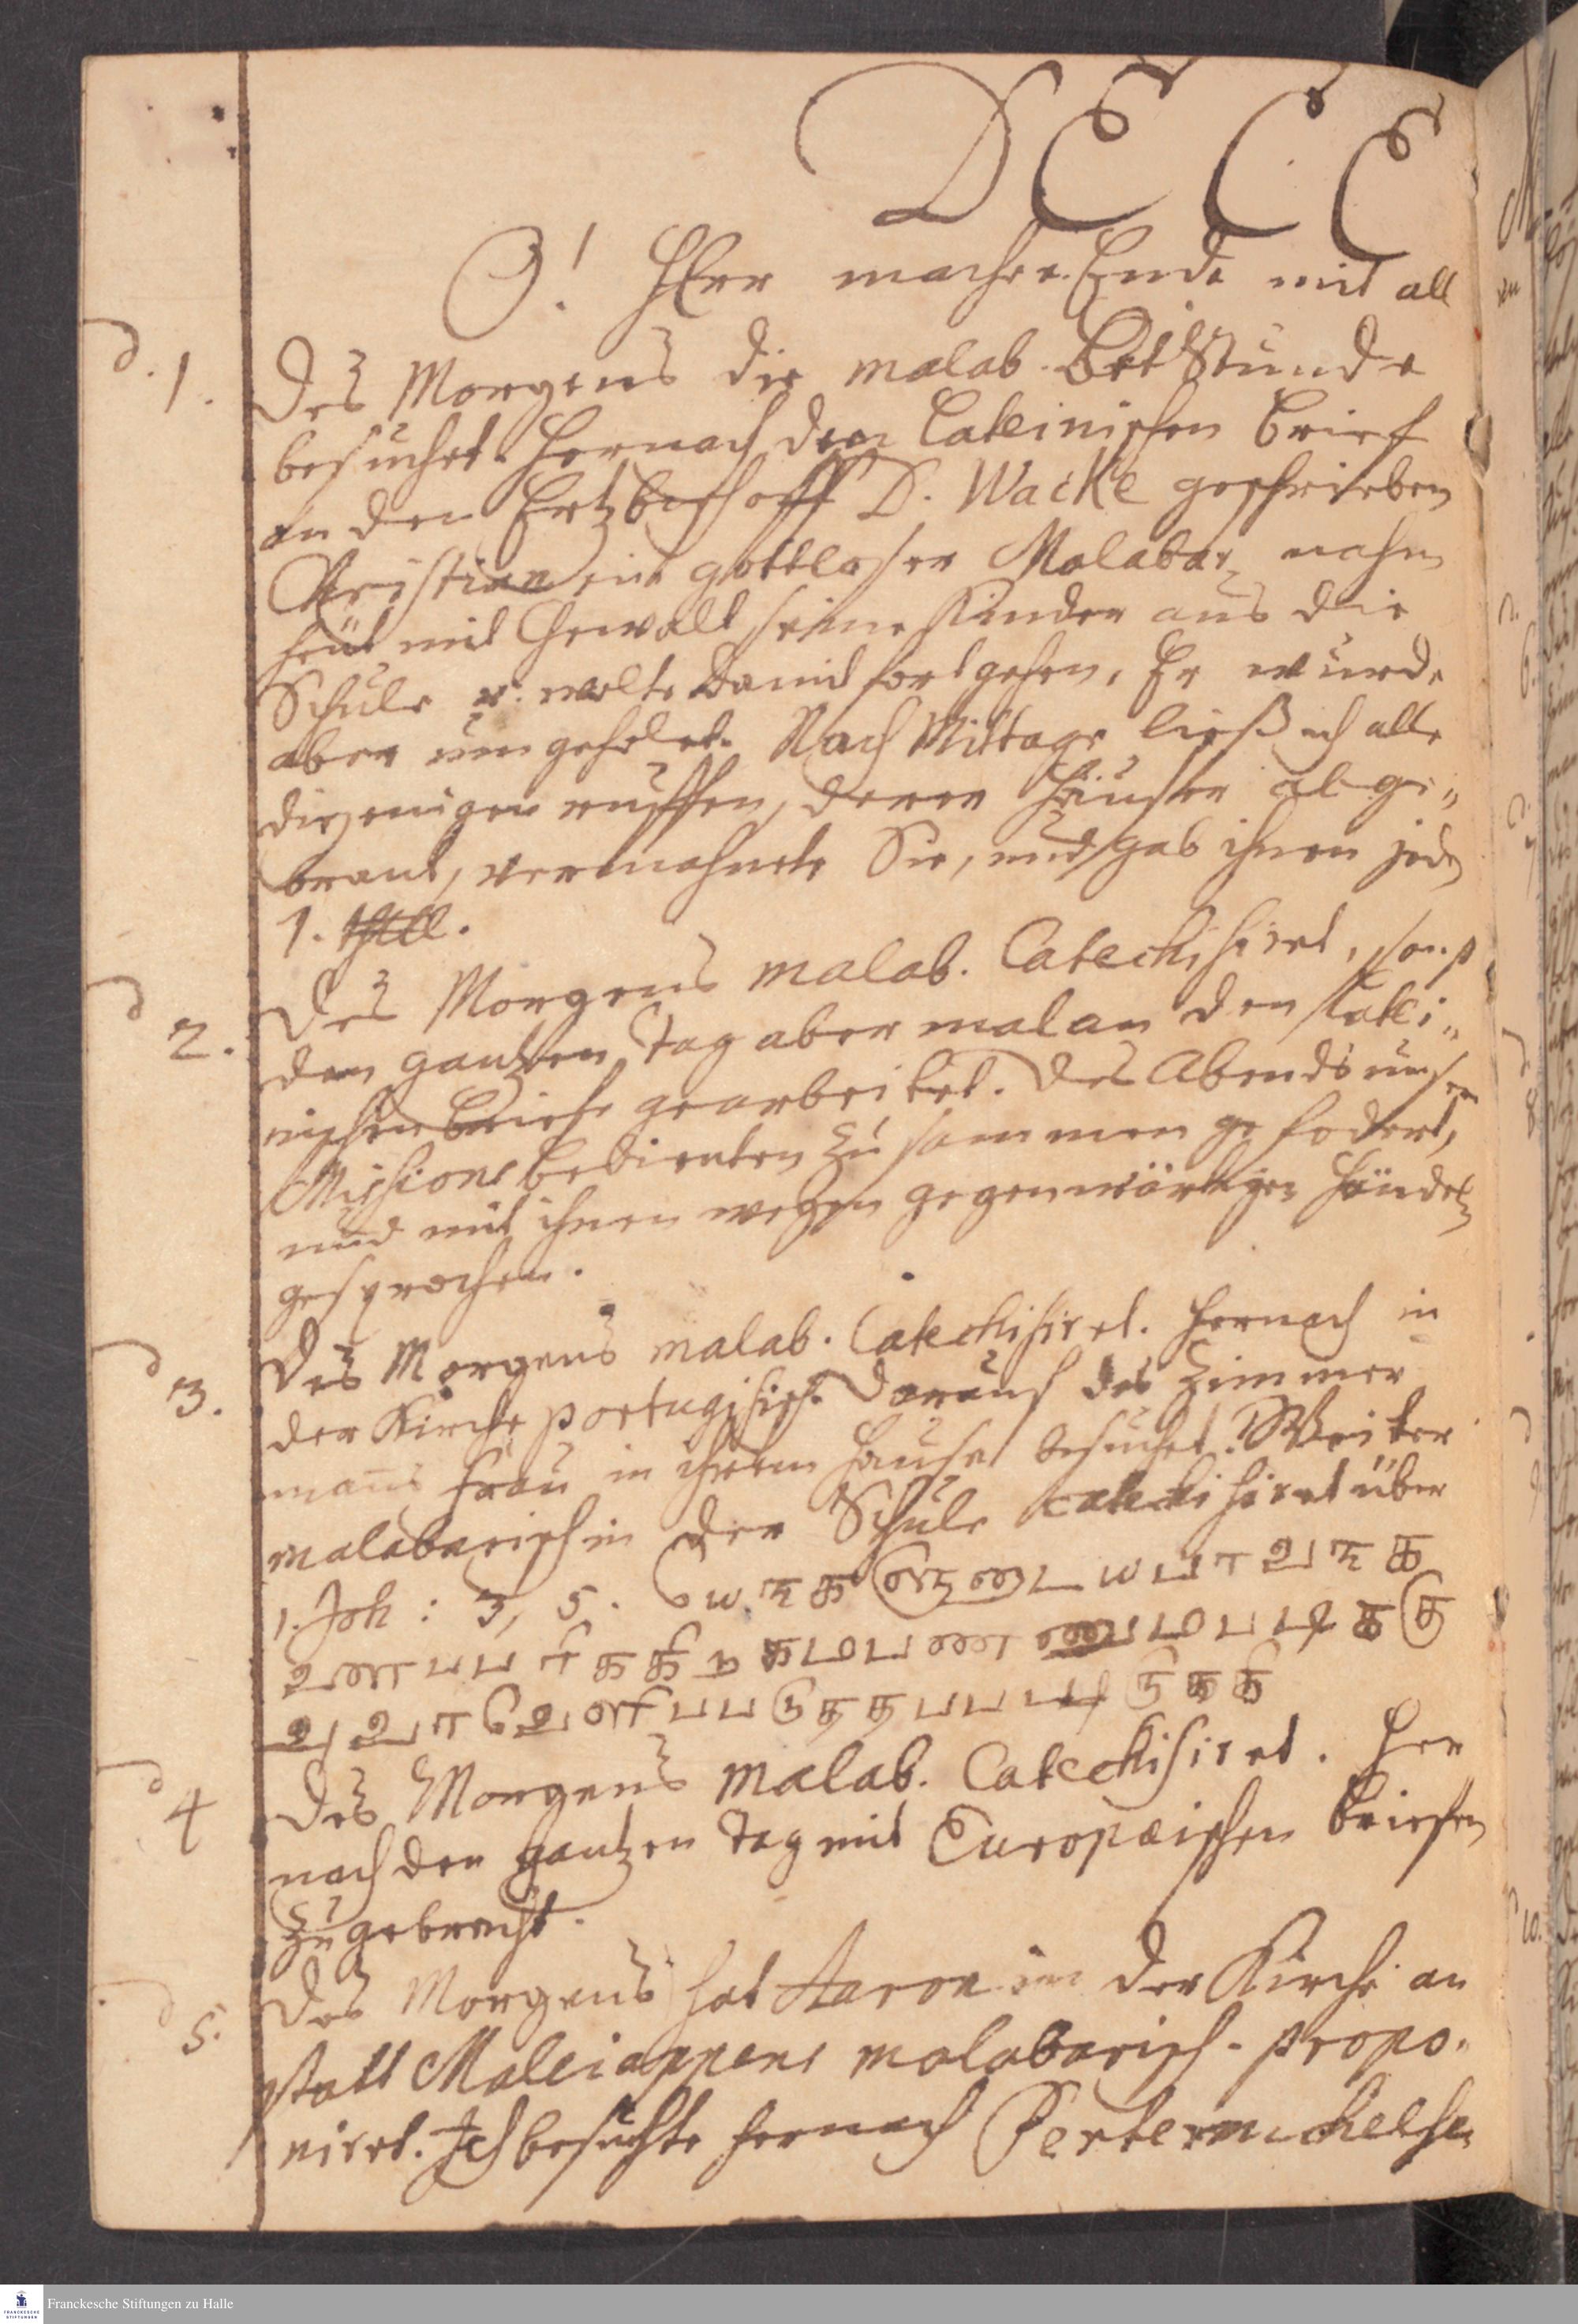 DECE
O! HErr mach ein Ende mit all
d. 1. Des Morgens die malab. Betstunde
besuchet. Hernach den Lateinischen Brief
an den Ertzbischoff D. Wacke geschrieben
Christian ein gottloser Malabar, nahm
heüt mit Gewalt seine Kinder aus die
Schule u. wolte damit fortgehen. Er wurde
aber umgeholet. Nach Mittage ließ ich alle
diejenigen ruffen, deren Häuser abge-
brant, vermahnete Sie, und gab ihnen jeden
1. Thll.
d 2. Des Morgens malab. Catechisiret, sonst
den gantzen Tag aber mal an den Latei-
nischen Briefe gearbeitet. Des Abends unsere
Missions bedienten zusammen gefodert,
und mit ihnen wegen gegenwärtiger Händel
gesprochen.
d 3. Des Morgens malab. Catechisiret. Hernach in
der Kirche portugisisch. Darauf des Zimmer
mans Frau in ihrem Hause besuchet. Weiter
malabarisch in der Schule catechisiret über
1. Joh: 3, 5.
d 4 Des Morgens malab. Catechisiret. Her
nach den gantzen Tag mit Europæischen Briefen
zugebracht.
d 5. Des Morgens hat Aaron in der Kirche an
statt Maleiappens malabarisch propo-
niret. Ich besuchte hernach
Franckesche Stiftungen zu Halle